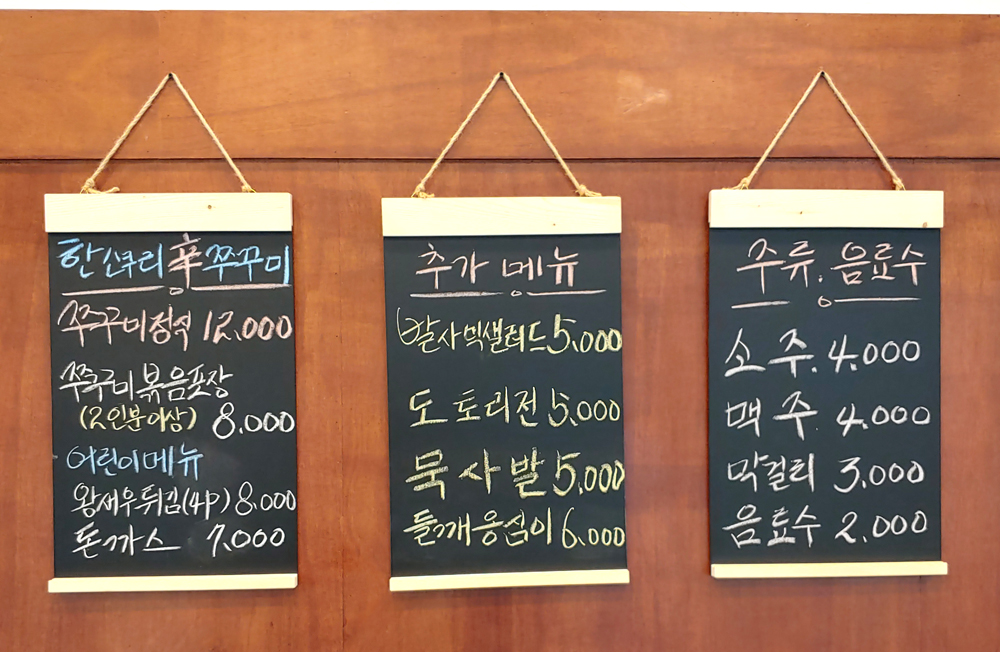 한소쿠리 辛 쭈꾸미
쭈꾸미정식 12,000
쭈꾸미볶음포장
(2인분이상) 8,000
어린이메뉴
왕새우튀김(4P) 8,000
돈까스 7,000
추가 메뉴
발사믹샐러드 5,000
도토리전 5,000
묵사발 5,000
들깨옹심이 6,000
주류. 음료수
소주. 4,000
맥주 4,000
막걸리 3,000
음료수 2,000